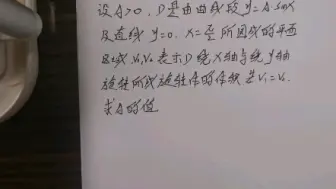 设A>0，D是由曲线段y=A sinx
及直线y=0，x=π/2所围成的平面
区域V₁V₂表示D绕X轴与绕y轴
旋转所成旋转体的体积若V₁=V₂
求A的值